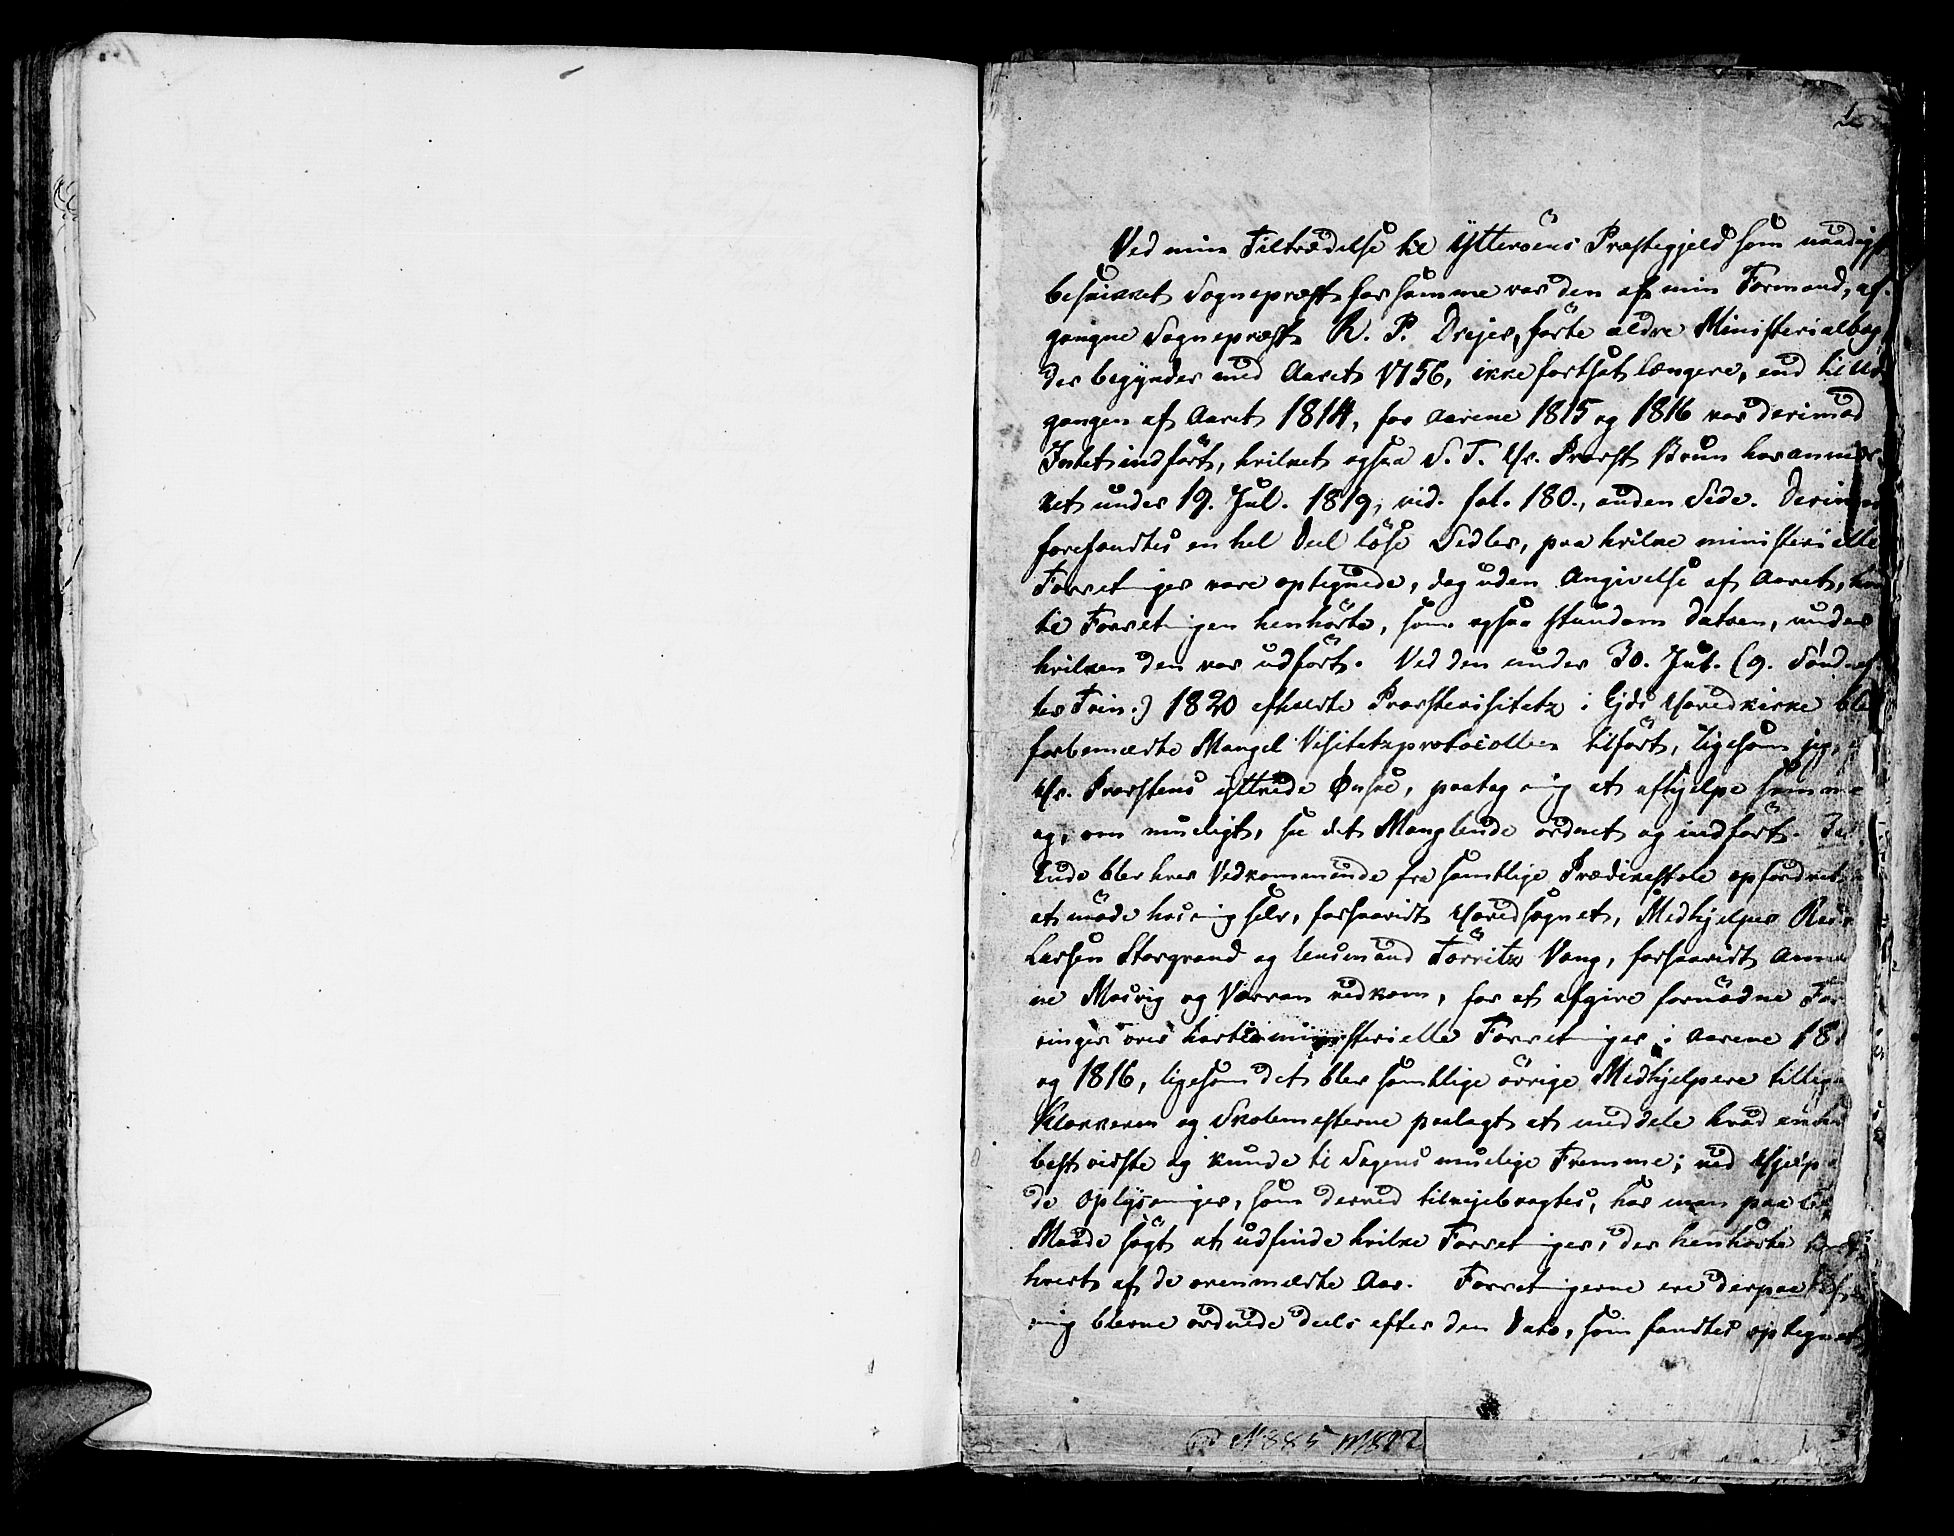 Ved min Tiltrædelse til Ytteröens Præstegjeld som naadigst
beskikket Sognepræst for samme var den af min Formand, af-
gangne Sognepræst R. P. Drejer, förte ældre Ministerialbog
der begynder med Aaret 1756, ikke fortsat længere, end til Ud-
gangen af Aaret 1814, for Aarene 1815 og 1816 var derimod
Intet indfört, hvilket ogsaa S. T. Hr. Provst Brun har anmær-
ket under 19. Jul. 1819, vid. fol. 180., anden Side. Derimod
forefandtes en hel Deel löse Sedler, paa hvilke ministerielle
Forretninger vare optegnede, dog uden Angivelse af Aaret, hvor
til Forretningen henhörte, som ogsaa stundom Datoen, under
hvilken den var udfört. Ved den under 30. Jul. (9. Sönd. ef-
ter Trin.) 1820 afholdte Provstevisitatz i Ejds Hovedkirke blev
forbemældte Mangel Visitatzprotocollen tilfört, ligesom jeg,
Hr. Provstens yttrede Önske, paatog mig at afhjelpe samme
og, om mueligt, fae det Manglende ordnet og indfört.
Ende blev hver Vedkommende fra samtlige Prædikestole opfordret
at möde hos mig selv, forsaavidt Hovedsognet, Medhjelper
Larsen Storgrand og Lensmand Törritz Vang, forsaavidt Annex
ne Mosvig og Værran vedkom, for at afgive fornödne
ringer over hos ministerielle Forretninger i Aarene 181
og 1816, ligesom det blev samtlige övrige Medhjelpere tillige
Klokkeren og Skolemesterne paalagt at meddele hvad enhver
best vidste og kunde til Sagens muelige Fremme; ved Hjelp
de Oplysninger, som derved tilvejebragtes, har man paa
Maade sögt at udfinde hvilke Forretninger, der henhörte
hvert af de ovenmældte Aar. Forretningerne ere derpaa
mig blevne ordnede deels efter den Dato, som fandtes optegnet,